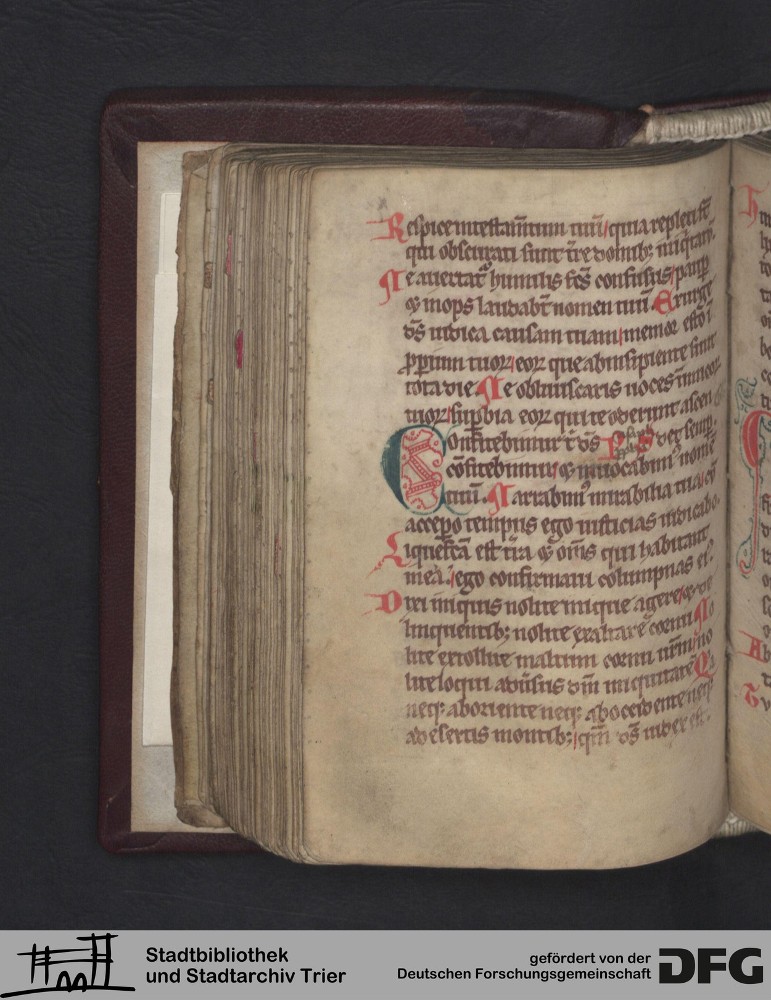 Respice intestam̄tum tuū/quia repleti sē̄
qui obscurati sunt t̄re domib; iniq̄tatū.
Ne auertat᷑ humilis fc̄s confusus/paup
⁊ inops laudabt̄ nomen tuū Exurge
ds̄ iudica causam tuam/memor esto ī
ꝓꝑium tuoꝝ/eoꝝ que ab insipiente sunt
tota die Ne obliuiscaris uoces inimicoꝝ
tuoꝝ/suꝑbia eoꝝ qui te oderunt ascen
Confitebimur t̄ ds̄ dit semp.
cōfitebimur/⁊ inuocabim᷑ nomē
tuū. Narrabim᷑ mirabilia tua/cū
accepo tempus ego iusticias iudicabo.
Liquefc̄a est t̄ra ⁊ om̄s qui habitant
in ea/ego confirmaui columpnas ei᷑
Dixi iniquis nolite inique agere/⁊ de
linquentib; nolite exaltare cornu No
lite extollite maltum cornu ur̄m/no
lite loqui aduīsus dm̄ iniquitatē Q̇a
neq; ab oriente neq; ab occidente neq;
ab desertis montib;/qm̄ ds̄ iudex est.
Stadtbibliothek
und Stadtarchiv Trier
gefördert von der
Deutschen Forschungsgemeinschaft
DFG